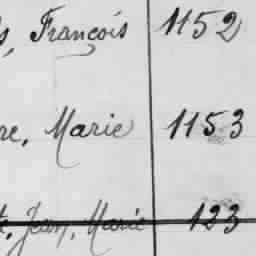 François 1152
Marie 1153
Jean, Marie 123